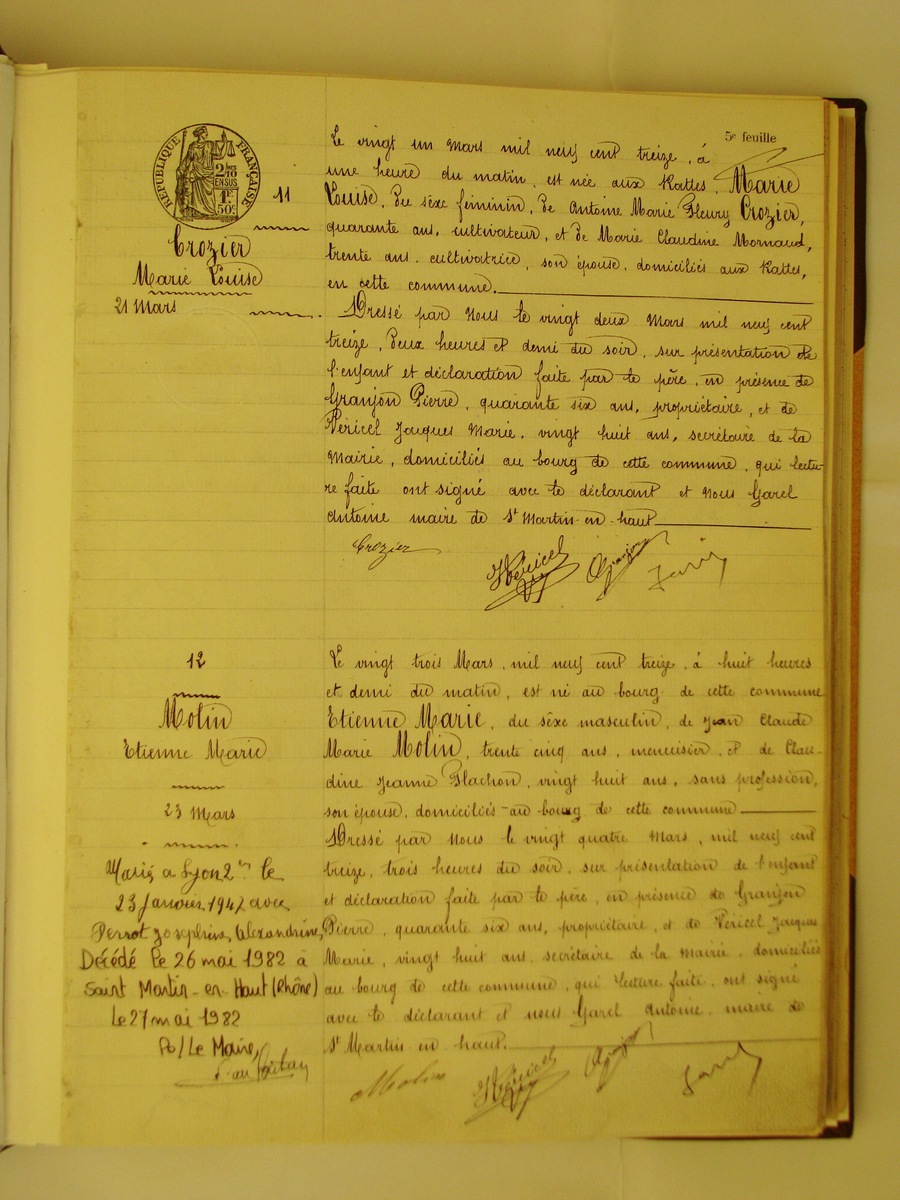 5e feuille
RÉPUBLIQUE FRANÇAISE
2/10
EN SUS
1F
50c
11
Crozier
Marie Louise
21 Mars
Le vingt un Mars mil neuf cent treize, à
une heure du matin, est née aux Rattes, Marie
Louise, du sexe féminin, de Antoine Marie Fleury Crozier,
quarante ans, cultivateur, et de Marie Claudine Mornaud,
trente ans, cultivatrice, son épouse, domiciliés aux Rattes,
en cette commune.
Dressé par Nous le vingt deux Mars mil neuf cent
treize, deux heures et demi du soir, sur présentation de
l'enfant et déclaration faite par le père, en présence de
Granjon Pierre, quarante six ans, propriétaire, et de
Péricel Jacques Marie, vingt huit ans, secrétaire de la
Mairie, domiciliés au bourg de cette commune, qui lectu-
re faite ont signé avec le déclarant et Nous Garel
Antoine maire de St Martin-en-haut
Crozier
Péricel Granjon Garel
12
Molin
Etienne Marie
23 Mars
Marié a Lyon 2e le
23 Janvier 1947 avec
Perrot Joséphine Alexandrine
Décédé le 26 mai 1982 à
Saint Martin-en-Haut (Rhône)
Le 27 mai 1982
Po/ Le Maire,
Le vingt trois Mars, mil neuf cent treize, à huit heures
et demi du matin, est né au bourg de cette commune
Etienne Marie, du sexe masculin, de Jean Claude
Marie Molin, trente cinq ans, menuisier, et de Clau-
dine Jeanne Flachon, vingt huit ans, sans profession,
son épouse, domiciliés au bourg de cette commune
Dressé par Nous le vingt quatre Mars, mil neuf cent
treize, trois heures du soir, sur présentation de l'enfant
et déclaration faite par le père, en présence de Granjon
Pierre, quarante six ans, propriétaire, et de Péricel Jacques
Marie, vingt huit ans, secrétaire de la mairie, domiciliés
au bourg de cette commune, qui lecture faite, ont signé
avec le déclarant et nous Garel Antoine, maire de
St Martin en haut.
Molin Péricel Granjon Garel